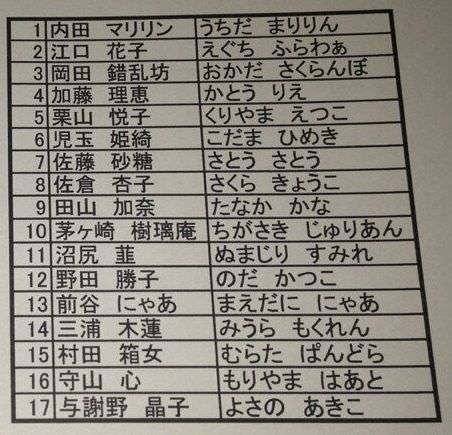 1 内田 マリリン うちだ まりりん
2 江口 花子 えぐち ふらわぁ
3 岡田 錯乱坊 おかだ さくらんぼ
4 加藤 理恵 かとう りえ
5 栗山 悦子 くりやま えつこ
6 児玉 姫綺 こだま ひめき
7 佐藤 砂糖 さとう さとう
8 佐倉 杏子 さくら きょうこ
9 田山 加奈 たなか かな
10 茅ヶ崎 樹璃庵 ちがさき じゅりあん
11 沼尻 菫 ぬまじり すみれ
12 野田 勝子 のだ かつこ
13 前谷 にゃあ まえだに にゃあ
14 三浦 木蓮 みうら もくれん
15 村田 箱女 むらた ぱんどら
16 守山 心 もりやま はあと
17 与謝野 晶子 よさの あきこ